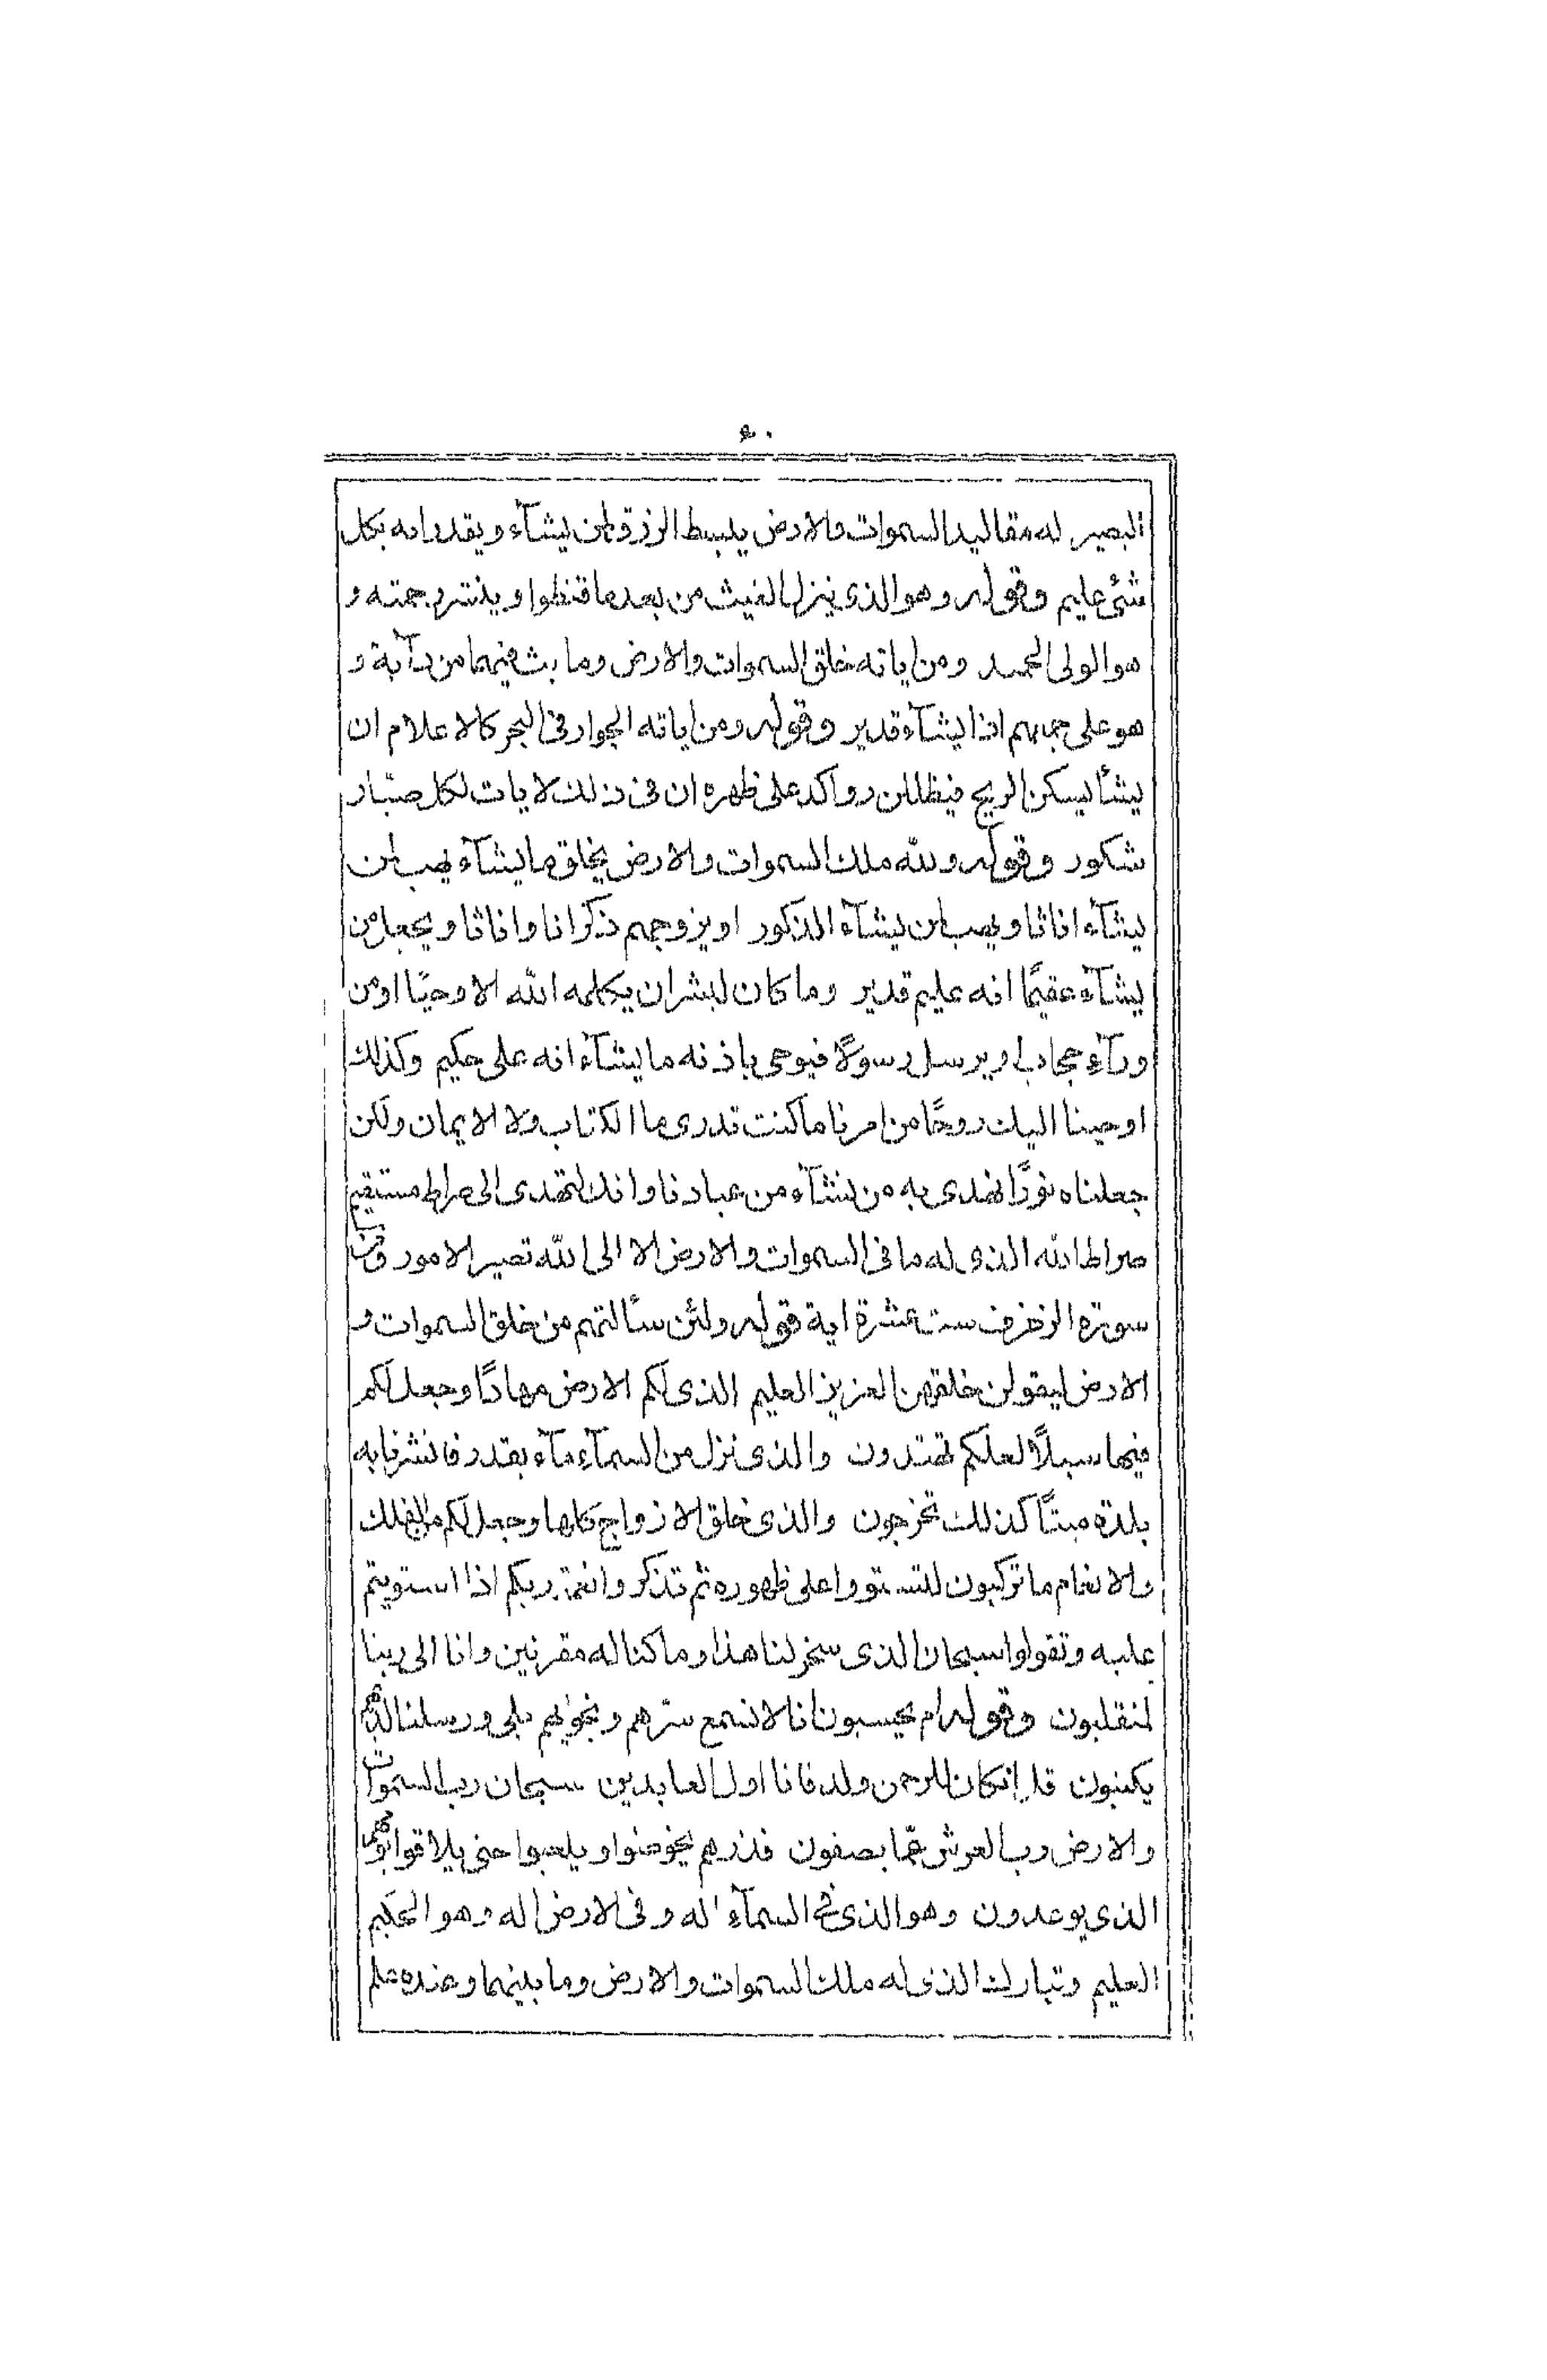 ٤٠
البصير له مقاليد السموات والارض يبسط الرزق لمن يشآء ويقدر انه بكل
شئ عليم وقوله وهو الذى ينزل الغيث من بعد ما قنطوا وينشر رحمته و
هو الولى الحميد ومن اياته خلق السموات والارض وما بث فيهما من دآبة و
هو على جمعهم اذا يشآء قدير وقوله ومن اياته الجوار فى البحر كالاعلام ان
يشأ يسكن الريح فيظللن رواكد على ظهره ان فى ذلك لايات لكل صبّار
شكور وقوله ولله ملك السموات والارض يخلق ما يشآء يهب لمن
يشآء اناثا ويهب لمن يشآء الذكور او يزوجهم ذكرانا واناثا ويجعل من
يشآء عقيمًا انه عليم قدير وما كان لبشر ان يكلمه الله الا وحيًا او من
ورآء حجاب او يرسل رسولًا فيوحى باذنه ما يشآء انه على حكيم وكذلك
اوحينا اليك روحًا من امرنا ما كنت تدرى ما الكتاب ولا الايمان ولكن
جعلناه نورًا نهدى به من نشآء من عبادنا وانك لتهدى الى صراط مستقيم
صراط الله الذى له ما فى السموات والارض الا الى الله تصير الامور ومن
سورة الزخرف ست عشرة اية قوله ولئن سألتهم من خلق السموات و
الارض ليقولن خلقهن العزيز العليم الذى لكم الارض مهادًا وجعل لكم
فيها سبلًا لعلكم تهتدون والذى نزل من السمآء مآء بقدر فانشرنا به
بلدة ميتًا كذلك تخرجون والذى خلق الازواج كلها وجعل لكم من الفلك
والانعام ما تركبون لتستووا على ظهوره ثم تذكروا نعمة ربكم اذا استويتم
عليه وتقولوا سبحان الذى سخر لنا هذا وما كنا له مقرنين وانا الى ربنا
لمنقلبون وقوله ام يحسبون انا لا نسمع سرّهم ونجويهم بلى ورسلنا لديهم
يكتبون قل ان كان للرحمن ولد فانا اول العابدين سبحان رب السموات
والارض رب العرش عمّا يصفون فذرهم يخوضوا ويلعبوا حتى يلاقوا يومهم
الذى يوعدون وهو الذى فى السمآء اله وفى الارض اله وهو الحكيم
العليم وتبارك الذى له ملك السموات والارض وما بينهما وعنده علم